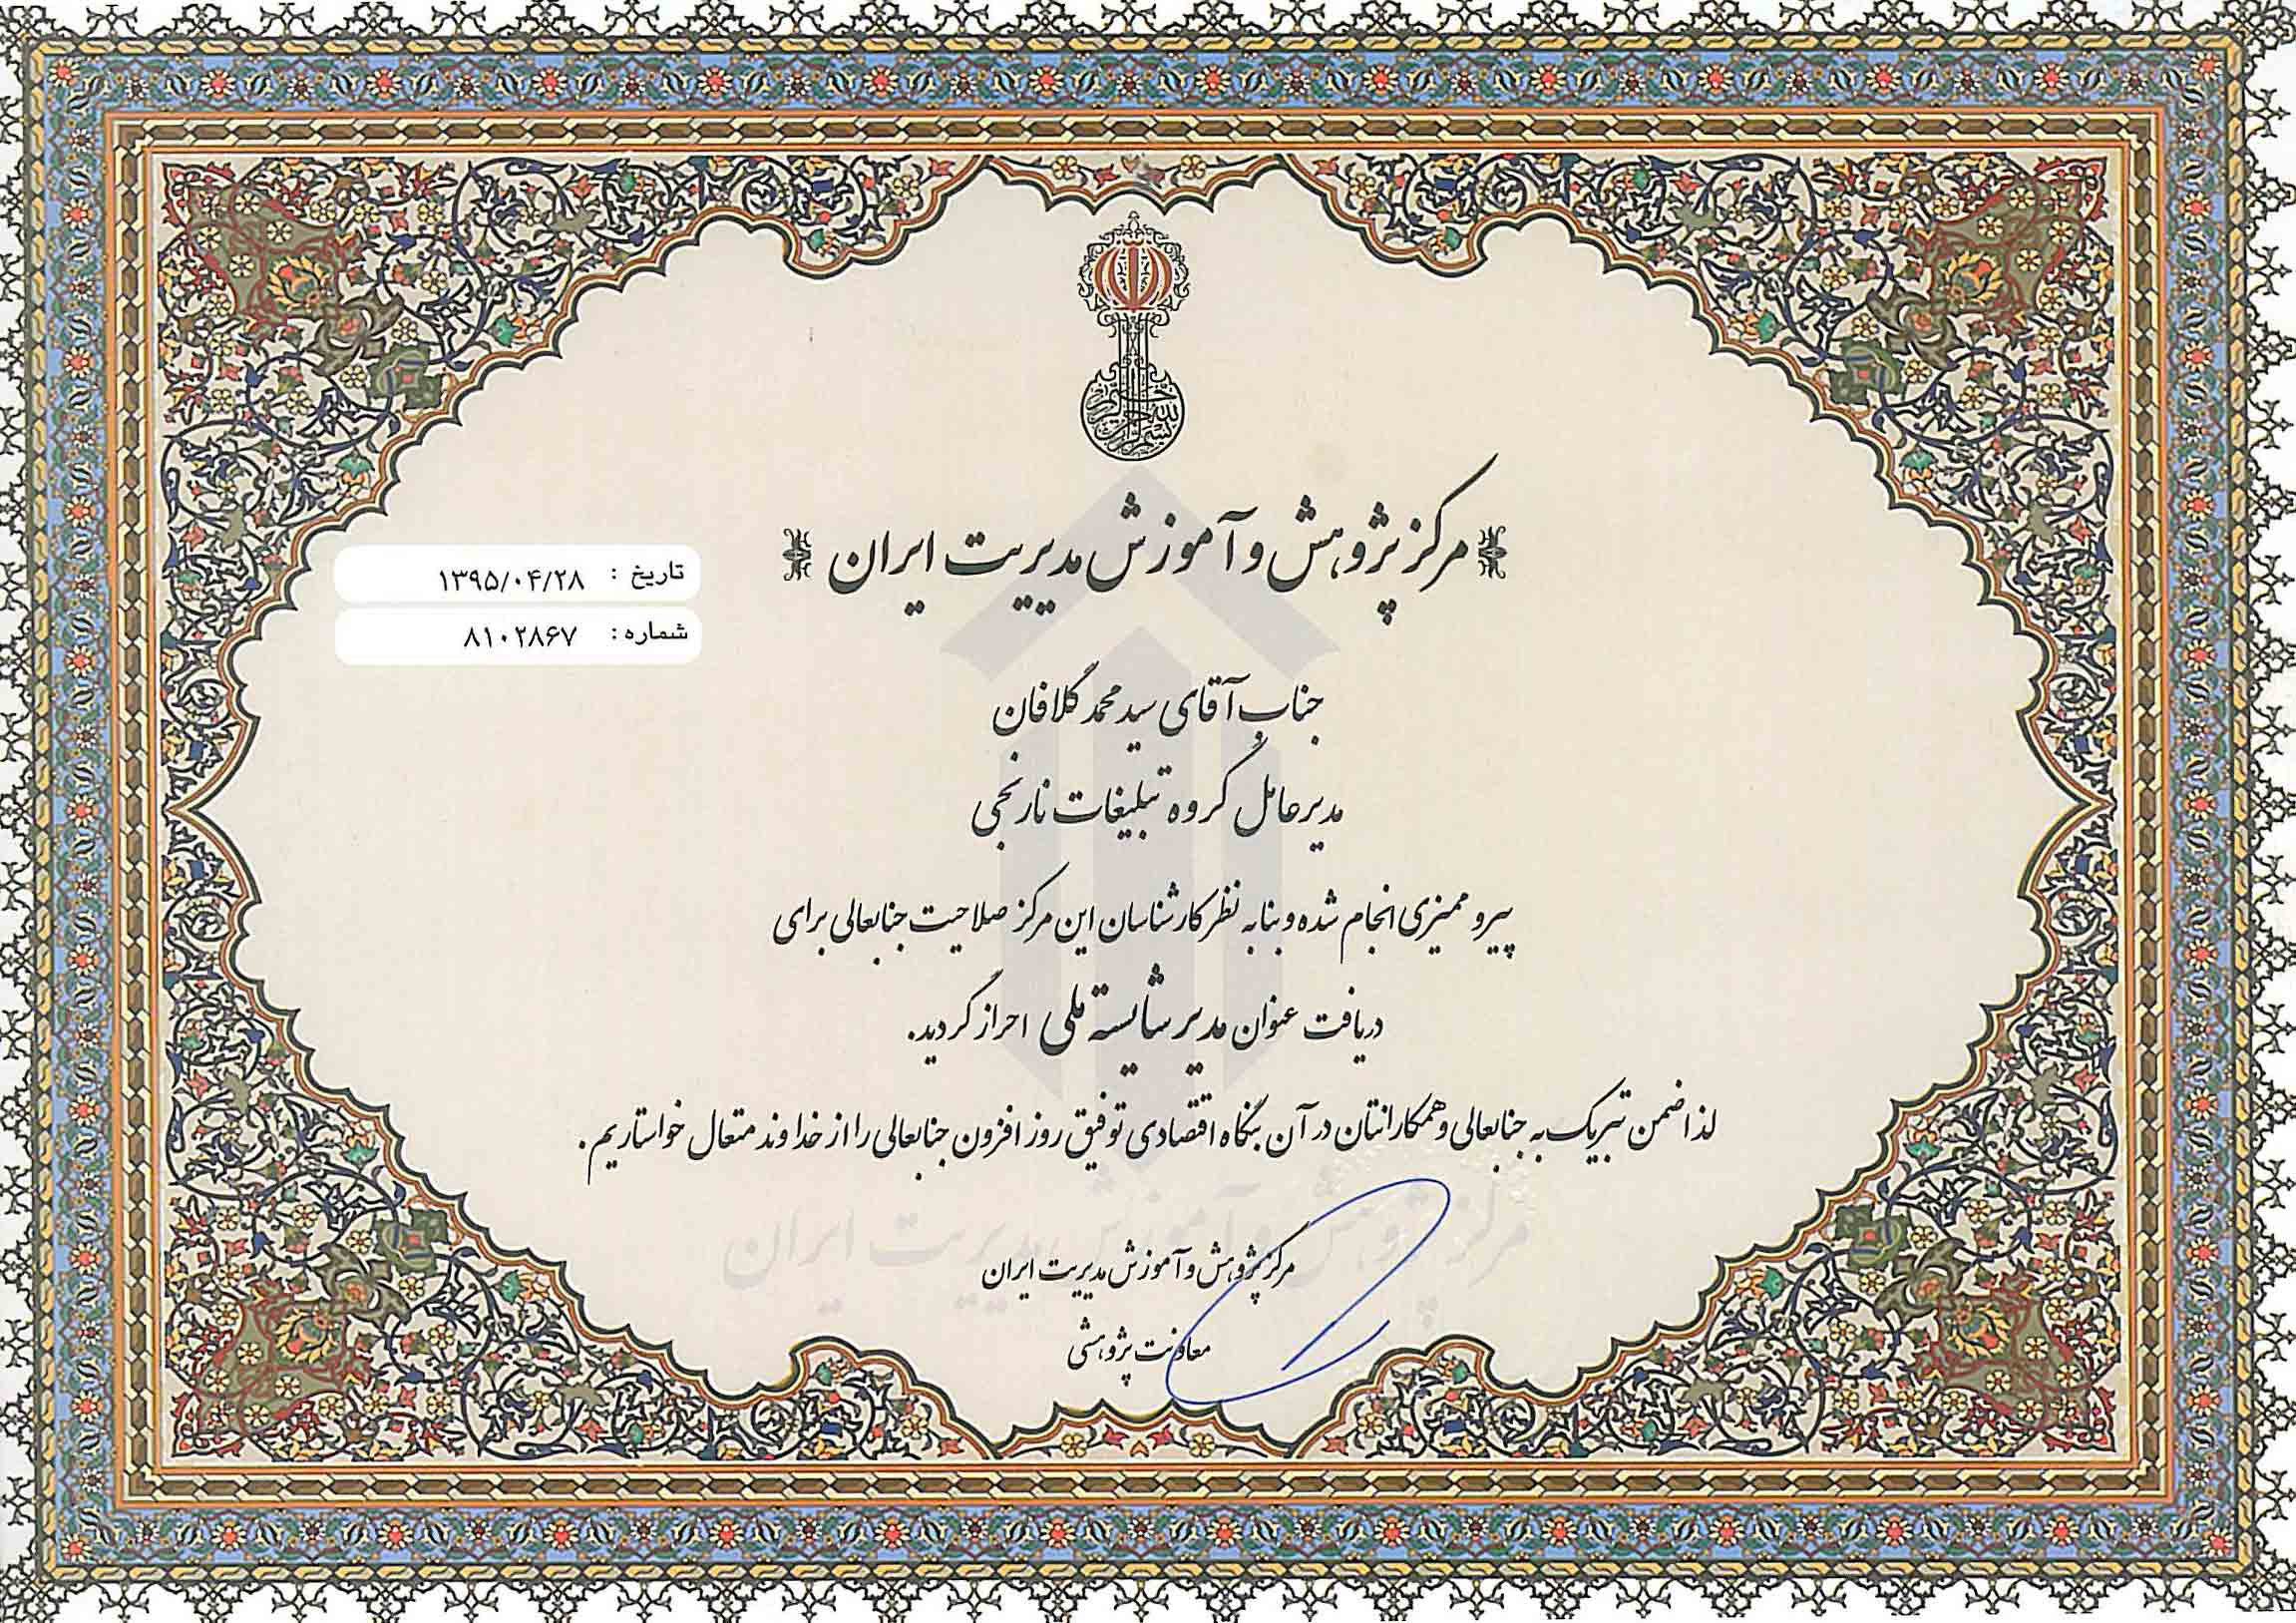 بسم الله الرحمن الرحیم
مرکز پژوهش و آموزش مدیریت ایران
تاریخ : ۱۳۹۵/۰۴/۲۸
شماره : ۸۱۰۲۸۶۷
جناب آقای سید محمد گلافان
مدیرعامل گروه تبلیغات نارنجی
پیرو ممیزی انجام شده و بنا به نظر کارشناسان این مرکز صلاحیت جنابعالی برای
دریافت عنوان مدیر شایسته ملی احراز گردید.
لذا ضمن تبریک به جنابعالی و همکارانتان در آن بنگاه اقتصادی توفیق روز افزون جنابعالی را از خداوند متعال خواستاریم.
مرکز پژوهش و آموزش مدیریت ایران
مرکز پژوهش و آموزش مدیریت ایران
معاونت پژوهشی